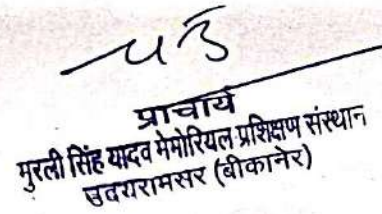 प्राचार्य
मुरली सिंह यादव मेमोरियल प्रशिक्षण संस्थान
उदयरामसर (बीकानेर)